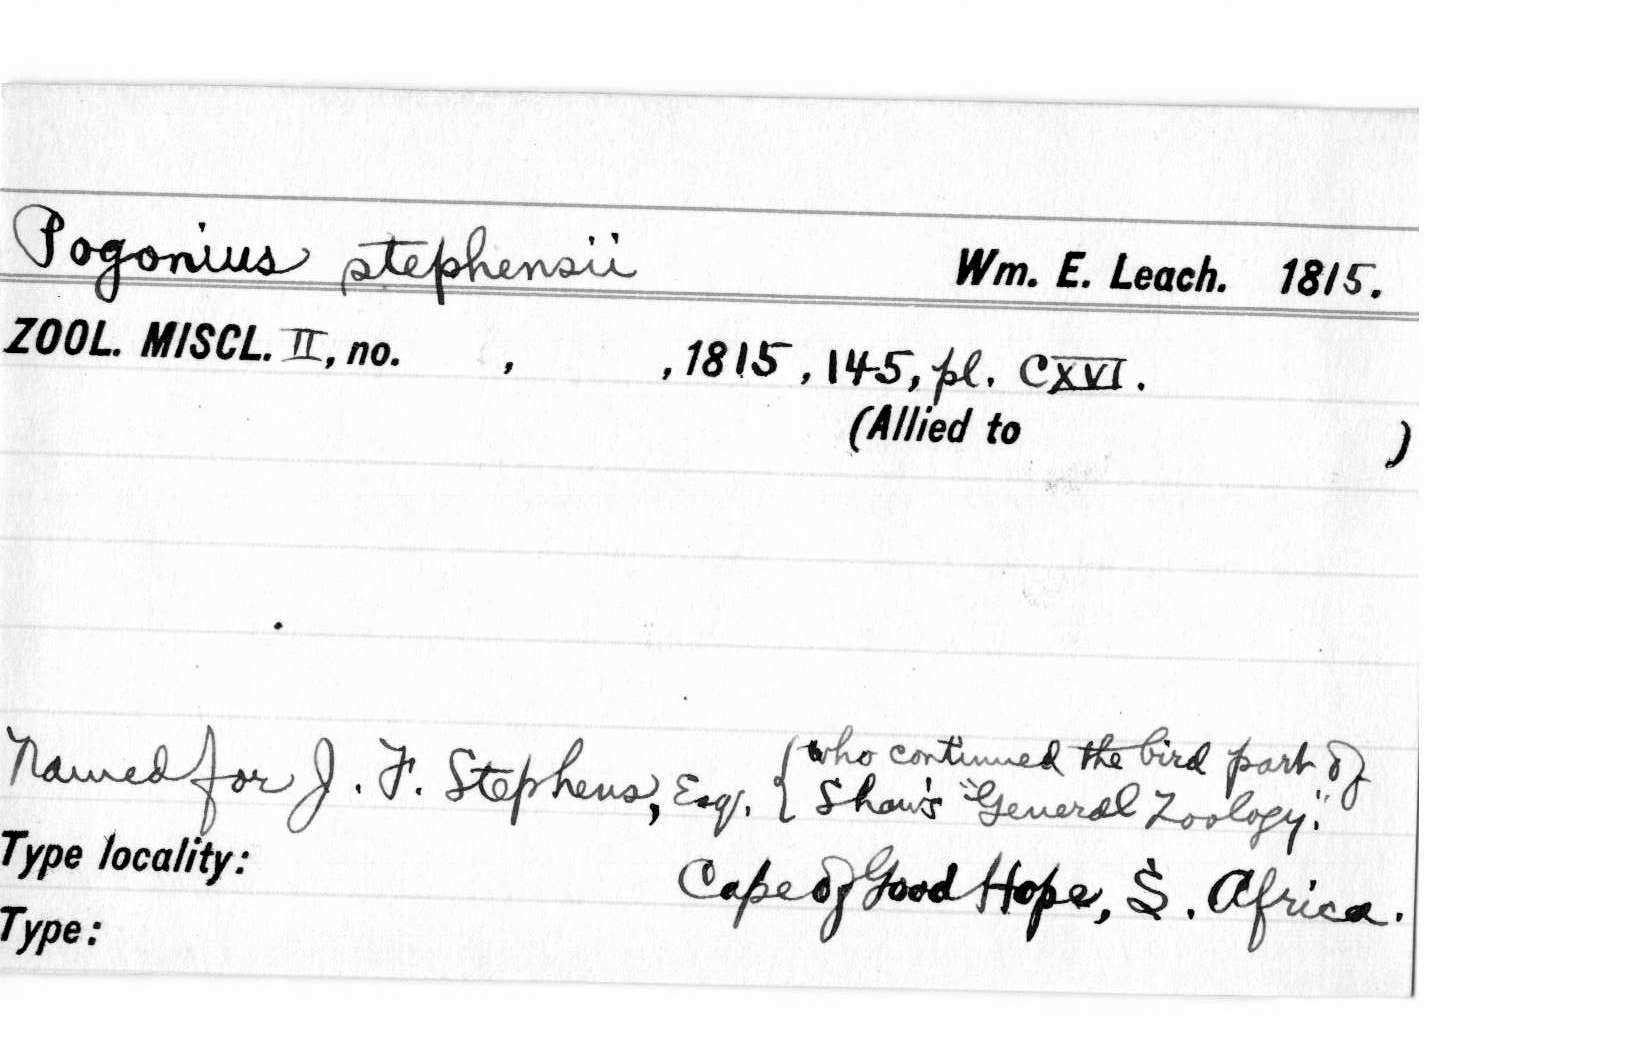 Pogonius stephensii Wm. E. Leach. 1815.
ZOOL. MISCL. II, no. , , 1815, 145, pl. CXVI.
(Allied to )
Named for J. F. Stephens, Esq. { who continued the bird part of
Shaw's "General Zoology."
Type locality: Cape of Good Hope, S. Africa.
Type: